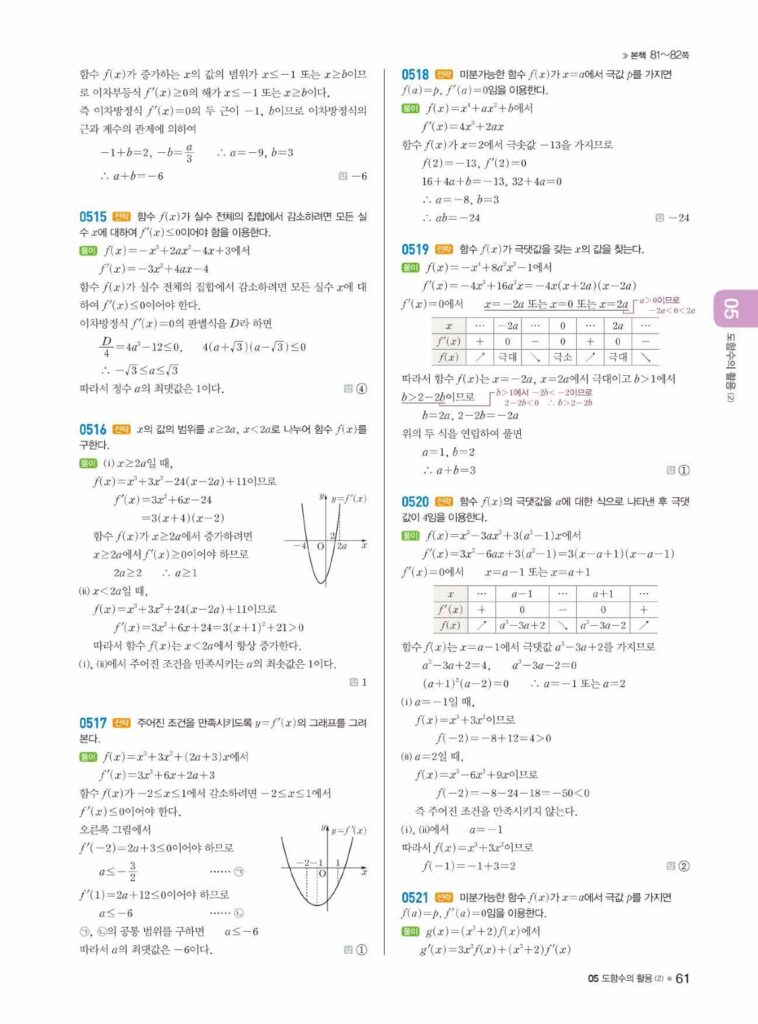 ≫ 본책 81~82쪽
함수 f(x)가 증가하는 x의 값의 범위가 x≤-1 또는 x≥b이므
로 이차부등식 f'(x)≥0의 해가 x≤-1 또는 x≥b이다.
즉 이차방정식 f'(x)=0의 두 근이 -1, b이므로 이차방정식의
근과 계수의 관계에 의하여
-1+b=2, -b=a/3 ∴ a=-9, b=3
∴ a+b=-6 답 -6
0515 전략 함수 f(x)가 실수 전체의 집합에서 감소하려면 모든 실
수 x에 대하여 f'(x)≤0이어야 함을 이용한다.
풀이 f(x)=-x³+2ax²-4x+3에서
f'(x)=-3x²+4ax-4
함수 f(x)가 실수 전체의 집합에서 감소하려면 모든 실수 x에 대
하여 f'(x)≤0이어야 한다.
이차방정식 f'(x)=0의 판별식을 D라 하면
D/4=4a²-12≤0, 4(a+√3)(a-√3)≤0
∴ -√3≤a≤√3
따라서 정수 a의 최댓값은 1이다. 답 ④
0516 전략 x의 값의 범위를 x≥2a, x<2a로 나누어 함수 f(x)를
구한다.
풀이 (i) x≥2a일 때,
f(x)=x³+3x²-24(x-2a)+11이므로
f'(x)=3x²+6x-24
=3(x+4)(x-2)
함수 f(x)가 x≥2a에서 증가하려면
x≥2a에서 f'(x)≥0이어야 하므로
2a≥2 ∴ a≥1
y y=f'(x)
-4 O 2 2a x
(ii) x<2a일 때,
f(x)=x³+3x²+24(x-2a)+11이므로
f'(x)=3x²+6x+24=3(x+1)²+21>0
따라서 함수 f(x)는 x<2a에서 항상 증가한다.
(i), (ii)에서 주어진 조건을 만족시키는 a의 최솟값은 1이다.
답 1
0517 전략 주어진 조건을 만족시키도록 y=f'(x)의 그래프를 그려
본다.
풀이 f(x)=x³+3x²+(2a+3)x에서
f'(x)=3x²+6x+2a+3
함수 f(x)가 -2≤x≤1에서 감소하려면 -2≤x≤1에서
f'(x)≤0이어야 한다.
오른쪽 그림에서
f'(-2)=2a+3≤0이어야 하므로
a≤-3/2 …… ㉠
f'(1)=2a+12≤0이어야 하므로
a≤-6 …… ㉡
y y=f'(x)
-2 -1 O 1 x
㉠, ㉡의 공통 범위를 구하면 a≤-6
따라서 a의 최댓값은 -6이다. 답 ①
0518 전략 미분가능한 함수 f(x)가 x=a에서 극값 p를 가지면
f(a)=p, f'(a)=0임을 이용한다.
풀이 f(x)=x⁴+ax²+b에서
f'(x)=4x³+2ax
함수 f(x)가 x=2에서 극솟값 -13을 가지므로
f(2)=-13, f'(2)=0
16+4a+b=-13, 32+4a=0
∴ a=-8, b=3
∴ ab=-24 답 -24
0519 전략 함수 f(x)가 극댓값을 갖는 x의 값을 찾는다.
풀이 f(x)=-x⁴+8a²x²-1에서
f'(x)=-4x³+16a²x=-4x(x+2a)(x-2a)
f'(x)=0에서 x=-2a 또는 x=0 또는 x=2a a>0이므로
-2a<0<2a
x … -2a … 0 … 2a …
f'(x) + 0 - 0 + 0 -
f(x) ↗ 극대 ↘ 극소 ↗ 극대 ↘
따라서 함수 f(x)는 x=-2a, x=2a에서 극대이고 b>1에서
b>2-2b이므로 b>1에서 -2b<-2이므로
2-2b<0 ∴ b>2-2b
b=2a, 2-2b=-2a
위의 두 식을 연립하여 풀면
a=1, b=2
∴ a+b=3 답 ①
0520 전략 함수 f(x)의 극댓값을 a에 대한 식으로 나타낸 후 극댓
값이 4임을 이용한다.
풀이 f(x)=x³-3ax²+3(a²-1)x에서
f'(x)=3x²-6ax+3(a²-1)=3(x-a+1)(x-a-1)
f'(x)=0에서 x=a-1 또는 x=a+1
x … a-1 … a+1 …
f'(x) + 0 - 0 +
f(x) ↗ a³-3a+2 ↘ a³-3a-2 ↗
함수 f(x)는 x=a-1에서 극댓값 a³-3a+2를 가지므로
a³-3a+2=4, a³-3a-2=0
(a+1)²(a-2)=0 ∴ a=-1 또는 a=2
(i) a=-1일 때,
f(x)=x³+3x²이므로
f(-2)=-8+12=4>0
(ii) a=2일 때,
f(x)=x³-6x²+9x이므로
f(-2)=-8-24-18=-50<0
즉 주어진 조건을 만족시키지 않는다.
(i), (ii)에서 a=-1
따라서 f(x)=x³+3x²이므로
f(-1)=-1+3=2 답 ②
0521 전략 미분가능한 함수 f(x)가 x=a에서 극값 p를 가지면
f(a)=p, f'(a)=0임을 이용한다.
풀이 g(x)=(x³+2)f(x)에서
g'(x)=3x²f(x)+(x³+2)f'(x)
05
도함수의 활용 (2)
05 도함수의 활용 (2) ★ 61